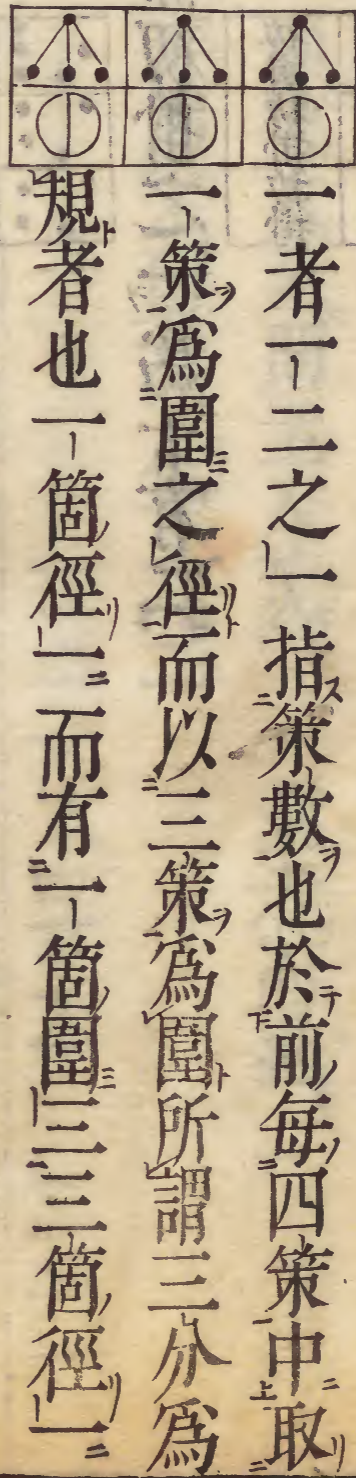 一者一二之一指策數也於前每四策中取
一策爲圍之徑而以三策爲圍所謂三分爲
規者也一箇徑一而有一箇圍三三箇徑一